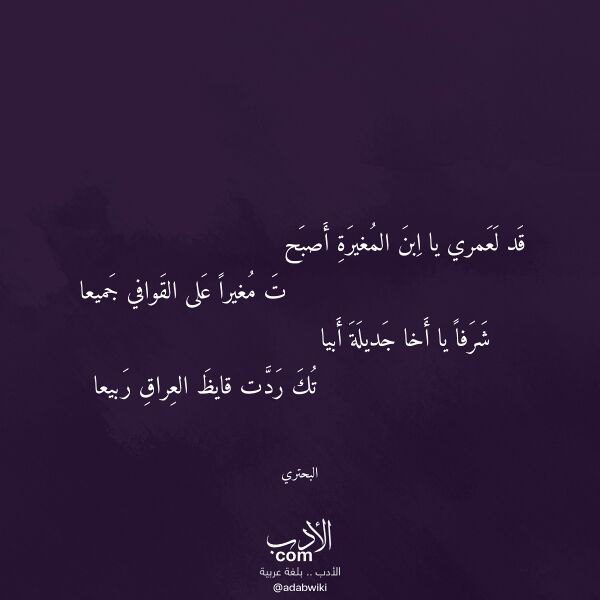 قَد لَعَمري يا اِبنَ المُغيرَةِ أَصبَح
تَ مُغيراً عَلى القَوافي جَميعا
شَرَفاً يا أَخا جَديلَةَ أَبيا
تُكَ رَدَّت قايظَ العِراقِ رَبيعا
البحتري
الأدب
com
الأدب .. بلغة عربية
@adabwiki